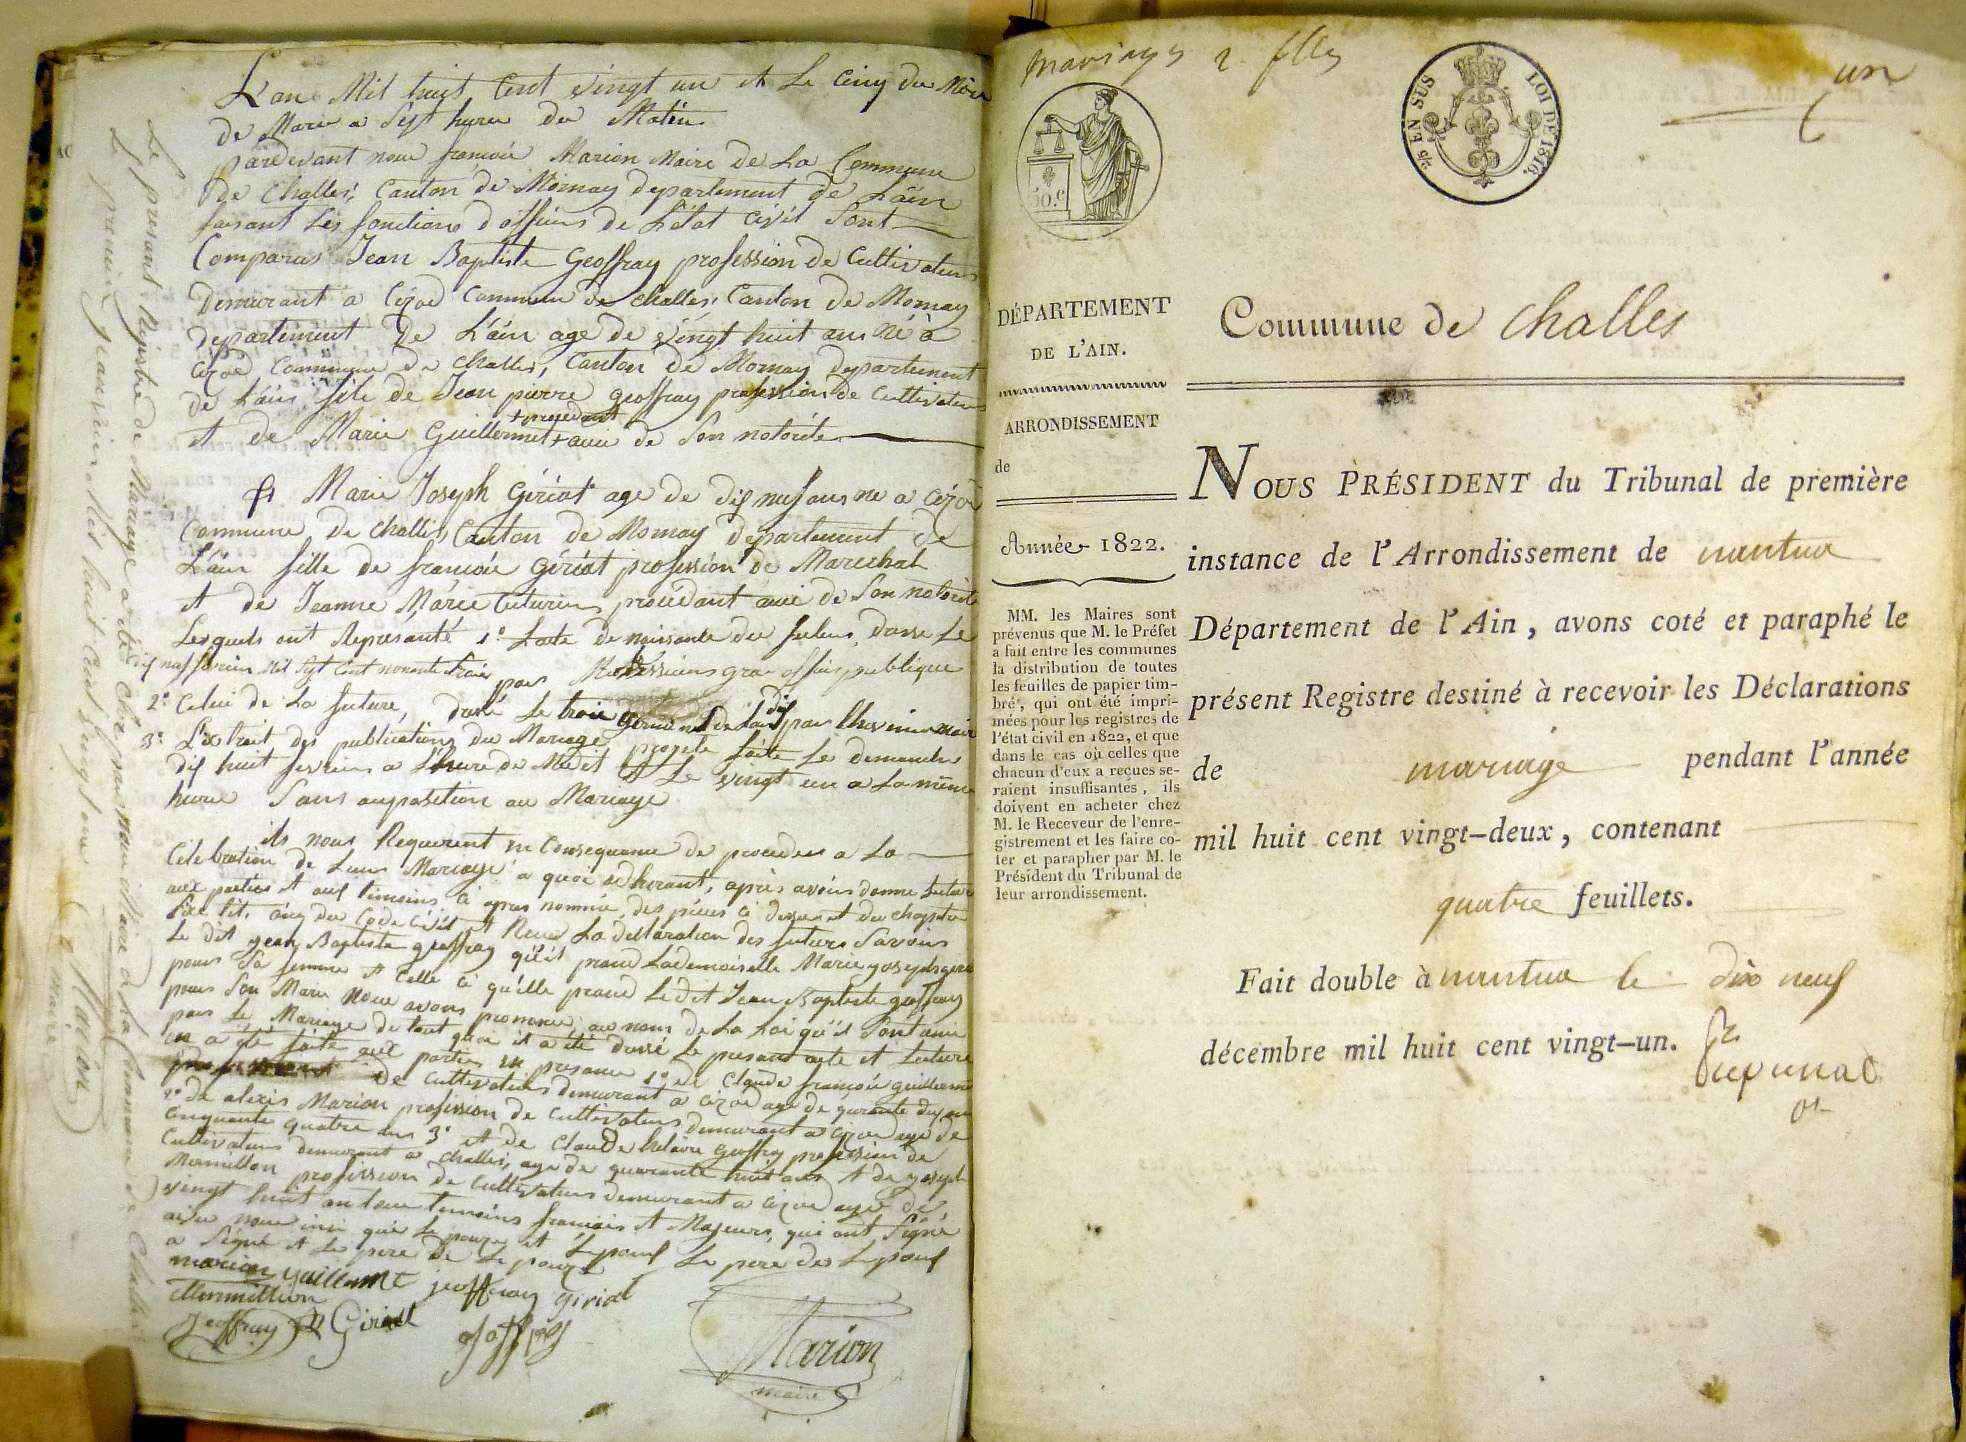 L'an Mil huit Cent vingt un et Le Cinq du Mois
de Mars a Sept heures du Matin
pardevant nous francois Marion Maire de La Commune
De Challes, Canton de Mornay departement de L'ain
faisant Les fonctions d'officiers de L'état Civil Sont
Comparus Jean Baptiste Geoffray profession de Cultivateur
Demeurant a Cizod Commune de challes, Canton de Mornay
departement de L'ain age de vingt huit ans né à
Cizod Commune de Challes, Canton de Mornay departement
de L'ain fils de Jean pierre geoffray profession de Cultivateur
+ procedant
et de Marie Guillermet + avec de Son notorité
Et Marie Joseph Giriat age de dix neuf ans ne a Cizod
Commune de Challes Canton de Mornay departement de
L'ain fille de francois Giriat profession de Marechal
et de Jeanne Marie procédant avec de Son notorité
Lesquels ont Representé 1º Lacte de naissance du futur, datté Le
dix neuf Mil Sept Cent nonante trois par officier publique
2º Celui de La future, datté Le trois par
3º L'Extrait des publications du Mariage projeté faite Le dimanche
dix huit fevrier a L'heure de Midi et Le vingt un a La même
heure Sans auposition au Mariage
ils nous Requerent en Consequance de proceder a La
Celebration de Leur Mariage a quoi adherant, après avoir donné Lecture
aux parties et aux timoins ci apres nommés, des pieces ci dessus et du chapitre
Six tit. cinq du Code Civil et Recu La declaration des futurs Savoir
Le dit jean Baptiste geoffray qu'il prand Lademoiselle Marie joseph giriat
pour Sa femme et Celle ci qu'elle prand Le dit Jean Baptiste geoffray
pour Son Mari Nous avons prononcé, au nom de La Loi qu'il Sont unis
par Le Mariage de tout quoi il a été dressé Le presant acte et Lecture
en a été faite aux parties en presance 1º de Claude francois guillermet
de Cultivateur demeurant a Cizod age de quarante dix ans
2º de alexis Marion profession de Cultivateur demeurant a Cizod age de
Cinquante quatre ans 3º et de Claude hilaire geoffray profession de
Cultivateur demeurant a Challes, age de quarante huit ans et de joseph
Mermillon profession de Cultivateur demeurant a Cizod age de
vingt huit ans tous temoins francais et Majeurs, qui ont Signé
avec nous insi que Le et L'
a Signé et Le pere de Le pere de
marion guillermet geoffray giriat
Mermillion
Geoffray Giriat
Marion
maire
Le presant Rejistre de Mariage arreté Clos par nous Maire de La Commune de Challes
Le premier janvier Mil huit Cent vingt deux Marion
maire
mariage 2 flles
un
50.c
5/c EN SUS
LOI DE 1816.
DÉPARTEMENT
DE L'AIN.
ARRONDISSEMENT
de
Année 1822.
MM. les Maires sont
prévenus que M. le Préfet
a fait entre les communes
la distribution de toutes
les feuilles de papier tim-
bré, qui ont été impri-
mées pour les registres de
l'état civil en 1822, et que
dans le cas où celles que
chacun d'eux a reçues se-
raient insuffisantes, ils
doivent en acheter chez
M. le Receveur de l'enre-
gistrement et les faire co-
ter et parapher par M. le
Président du Tribunal de
leur arrondissement.
Commune de challes
NOUS PRÉSIDENT du Tribunal de première
instance de l'Arrondissement de nantua
Département de l'Ain, avons coté et paraphé le
présent Registre destiné à recevoir les Déclarations
de mariage pendant l'année
mil huit cent vingt-deux, contenant
quatre feuillets.
Fait double à nantua le dix neuf
décembre mil huit cent vingt-un.